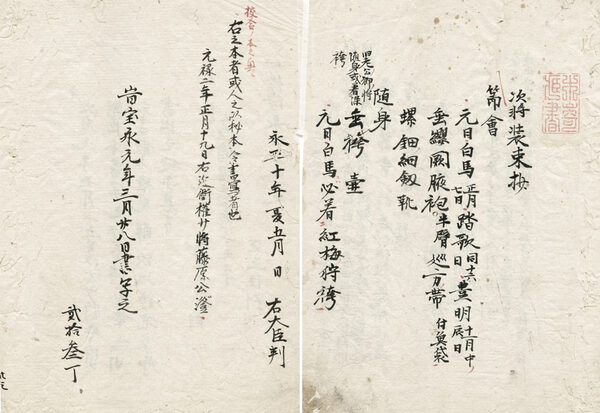 次将装束抄
節會
元日白馬 正月七日 踏歌 同十六日 豊明 十一月中辰日
垂纓 闕腋袍 半臂 巡方帯 付魚袋
螺鈿細劔 靴
随身
垂袴 壺
元日白馬必着紅梅狩袴
永正十年夏五月日 右大臣判
右之本者或人之以秘本令書写者也
元禄二年正月十九日右近衛権中将藤原公澄
旹宝永元年三月廿八日書写之
貳拾叁丁